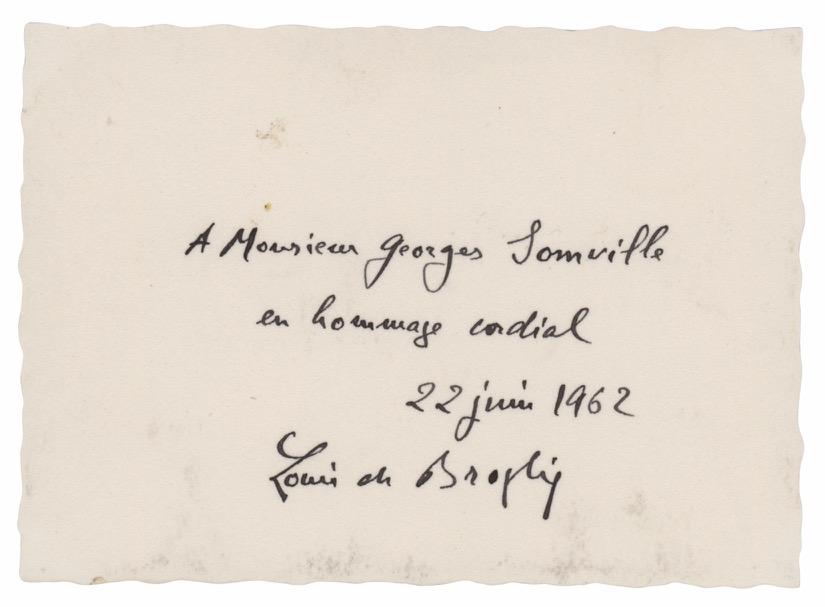 A Monsieur Georges Somville
en hommage cordial
22 juin 1962
Louis de Broglie